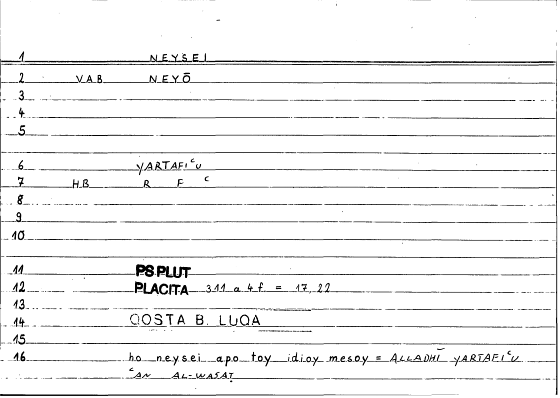 1 NEYSEI
2 V.A.B. NEYŌ
3
4
5
6 YARTAFIᶜU
7 H.B R F ᶜ
8
9
10
11 PS PLUT
12 PLACITA 311 a 4 f = 17, 22
13
14 QOSTA B. LUQA
15
16 ho neysei apo toy idioy mesoy = ALLADHĪ YARTAFIᶜU
ᶜAN AL-WASAṬ